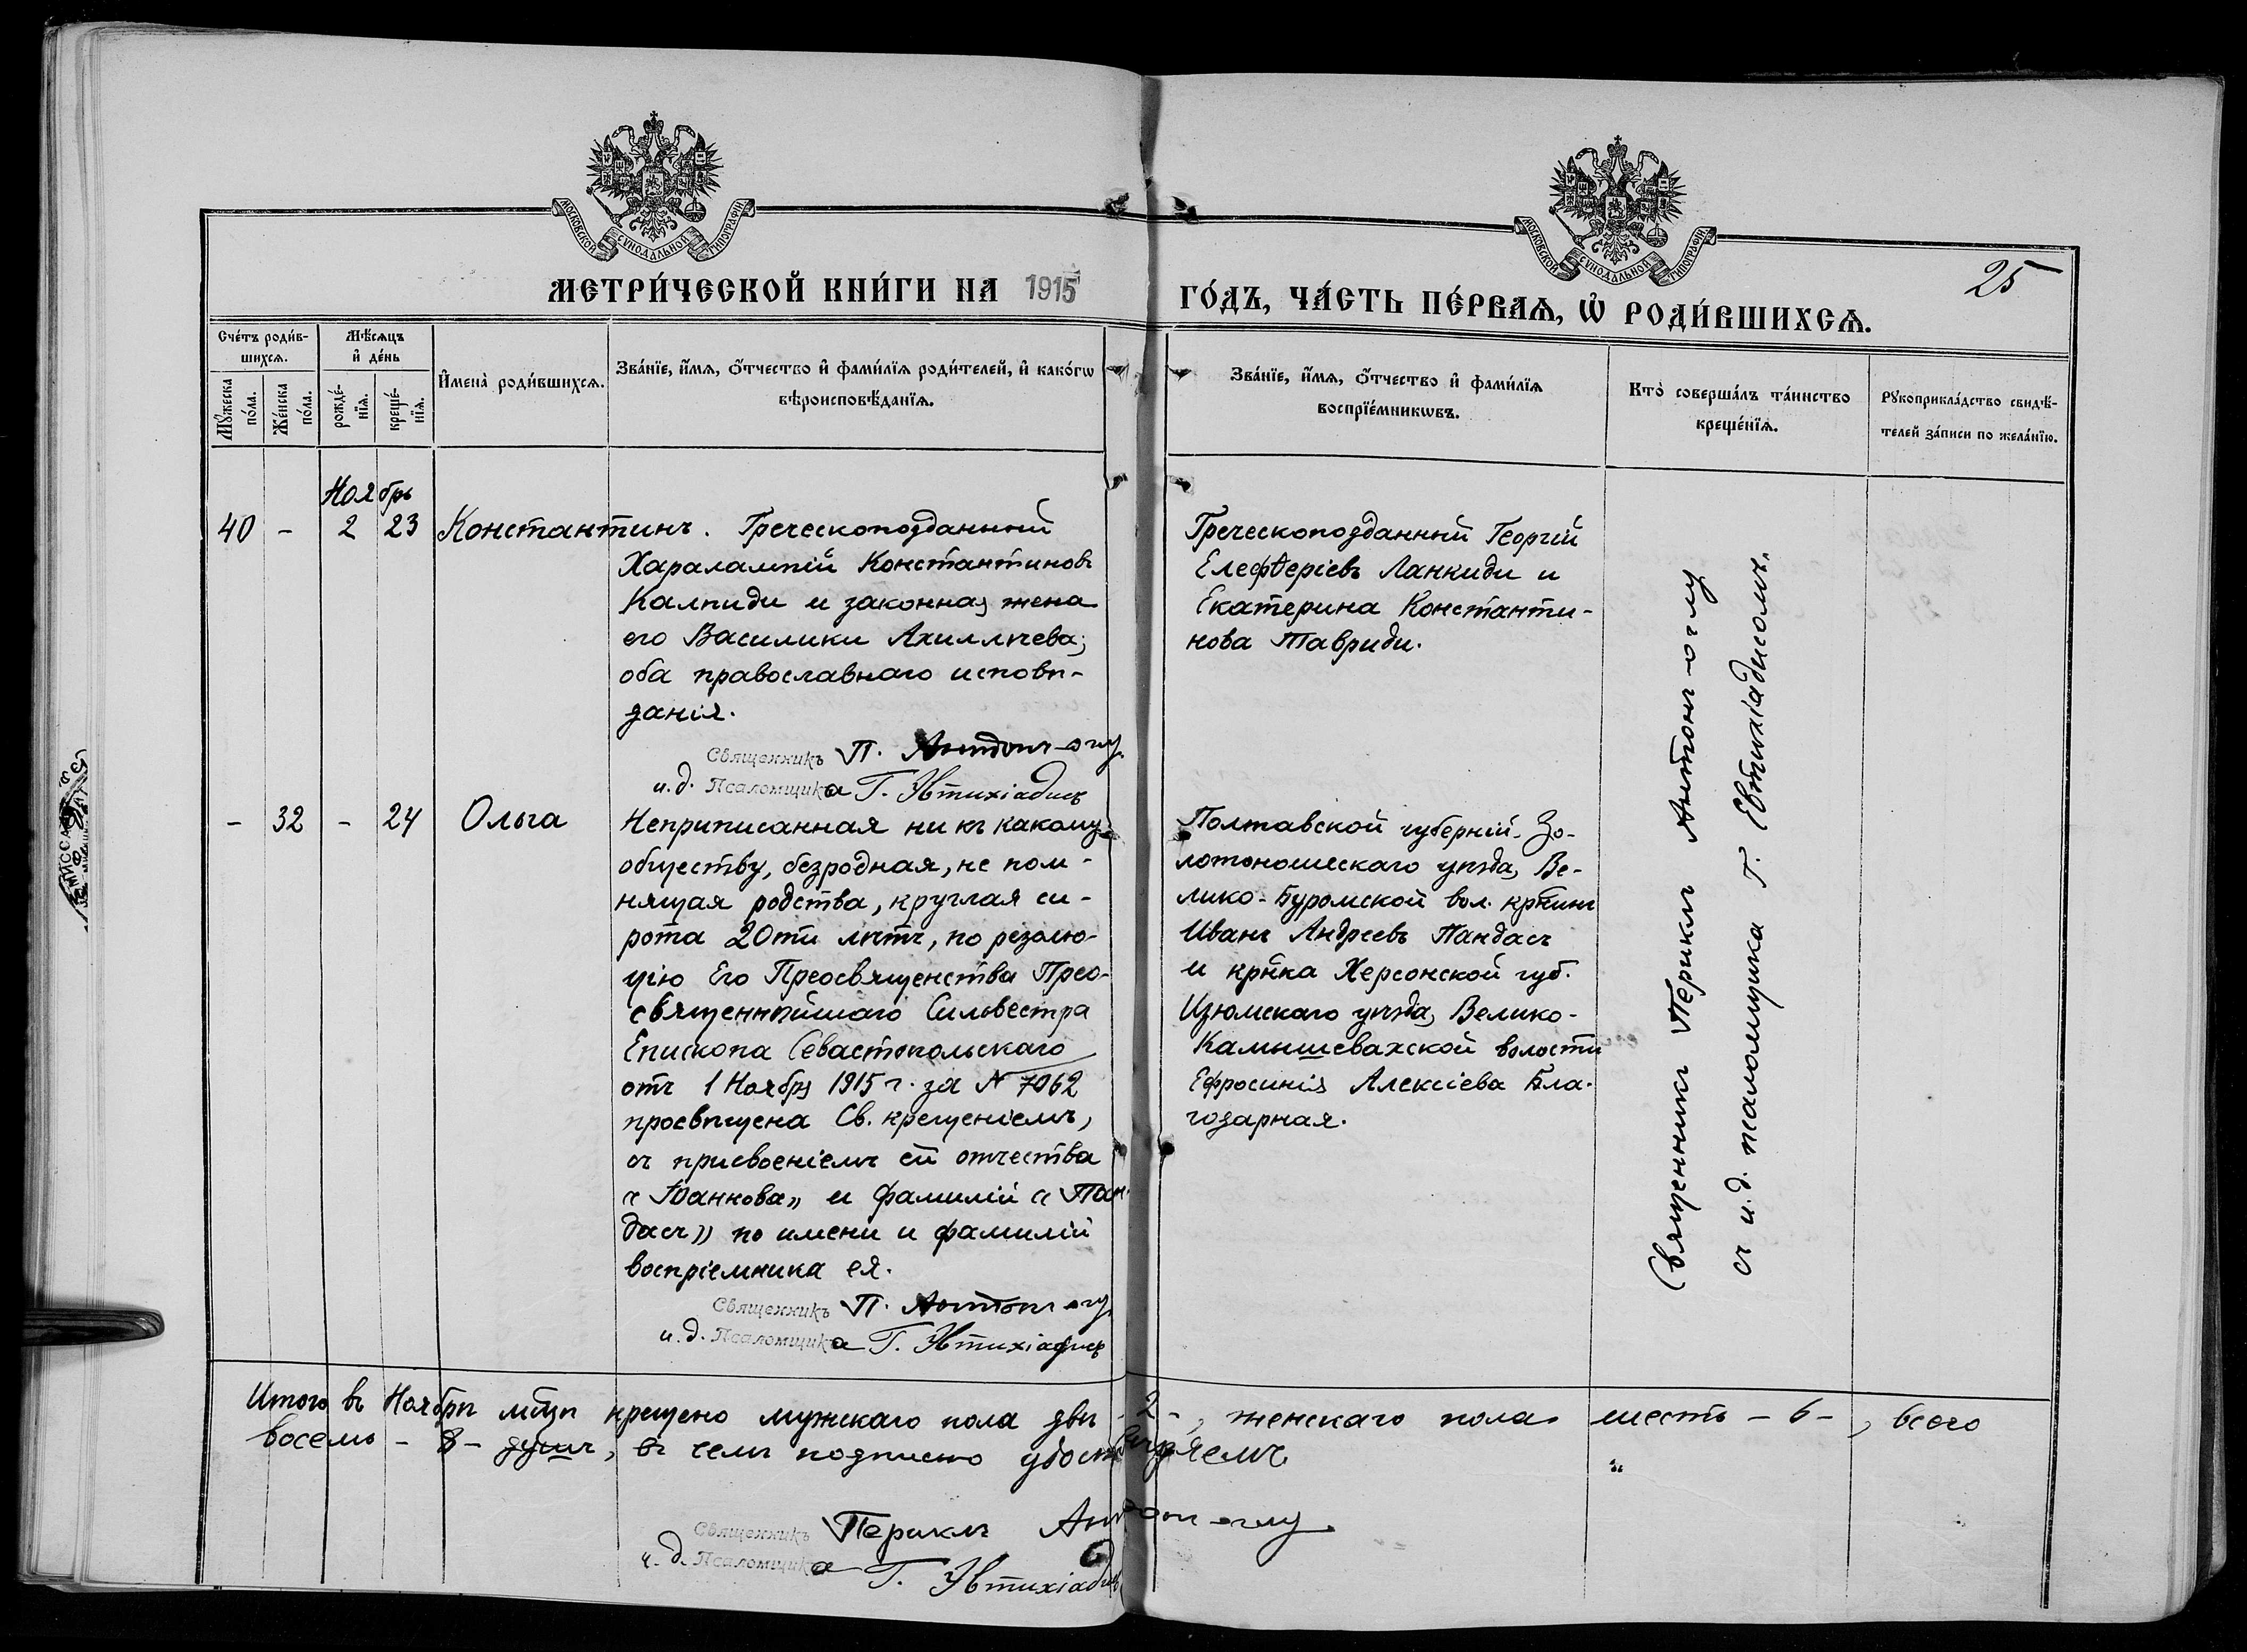 МОСКОВСКОЙ СѴНОДАЛЬНОЙ ТИПОГРАФІИ
МОСКОВСКОЙ СѴНОДАЛЬНОЙ ТИПОГРАФІИ
25
МЕТРИ́ЧЕСКОЙ КНИ́ГИ НА 1915 ГО́ДЪ, ЧА́СТЬ ПЕ́РВАѦ, Ѡ҆ РОДИ́ВШИХСѦ.
Сче́тъ роди́в-
шихсѧ.
Мꙋ́жеска по́ла.
Же́нска по́ла.
Мѣ́сѧцъ
и҆ де́нь
рожде́-
нїѧ.
креще́-
нїѧ.
И҆мена̀ роди́вшихсѧ.
Зва́нїе, и҆́мѧ, ѻ҆́тчество и҆ фами́лїѧ роди́телей, и҆ како́гѡ
вѣроисповѣ́данїѧ.
Зва́нїе, и҆́мѧ, ѻ҆́тчество и҆ фами́лїѧ
воспрїе́мникѡвъ.
Кто̀ соверша́лъ та́инство
креще́нїѧ.
Рꙋкоприкла́дство свидѣ́-
телей за́писи по жела́нїю.
Ноябрь
40 - 2 23 Константинъ. Греческоподданный
Харалампій Константиновъ
Калпиди и законная жена
его Василики Ахиллѣева,
оба православнаго исповѣ-
данія.
Священникъ П. Антонъ-оглу
и.д. Псаломщика Г. Эвтихіадисъ
Греческоподданный Георгій
Елефѳеріевъ Ланкиди и
Екатерина Константи-
нова Тавриди.
- 32 - 24 Ольга
Неприписанная ни къ какому
обществу, безродная, не пом-
нящая родства, круглая си-
рота 20ти лѣтъ, по резолю-
цію Его Преосвященства Прео-
священнѣйшаго Сильвестра
Епископа Севастопольскаго
отъ 1 Ноября 1915 г. за № 7062
просвѣщена Св. крещеніемъ,
съ присвоеніемъ ей отчества
«Іоаннова» и фамилій «Пан-
дасъ» по имени и фамилій
воспріемника ея.
Священникъ П. Антонъ-оглу
и.д. Псаломщика Г. Эвтихіадисъ
Полтавской губерній Зо-
лотоношескаго уѣзда, Ве-
лико-Буромской вол. крнинъ
Иванъ Андреевъ Пандасъ
и крнка Херсонской губ.
Изюмскаго уѣзда, Велико-
Камышевахской волости
Ефросинія Алексіева Бла-
годарная.
Священникъ Периклъ Антонъ-оглу
съ и.д. псаломщика Г. Евтихіадисомъ.
Итого въ Ноябрѣ мѣцѣ крещено мужскаго пола двѣ - 2 -, женскаго пола шесть - 6 -, всего
восемь - 8 - душъ, въ чемъ подписью удостовѣряемъ.
Священникъ Периклъ Антонъ-оглу
и.д. Псаломщика Г. Эвтихіадисъ